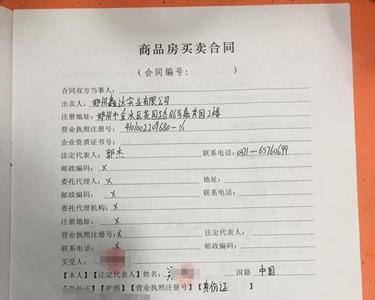 商品房买卖合同
(合同编号: )
合同双方当事人:
出卖人: 郑州鑫达实业有限公司
注册地址: 郑州市金水区花园路86号嘉秀园2楼
营业执照注册号: 4101002209680-1/1
企业资质证书号:
法定代表人: 郭杰 联系电话: 0371-65760699
邮政编码: X
委托代理人: X 地址:
邮政编码: X 联系电话:
委托代理机构: X
注册地址: X
营业执照注册号: X 法定代表人:
联系电话: X 邮政编码:
买受人:
【本人】【法定代表人】姓名: 国籍 中国
【身份证】【护照】【营业执照注册号】【身份证】